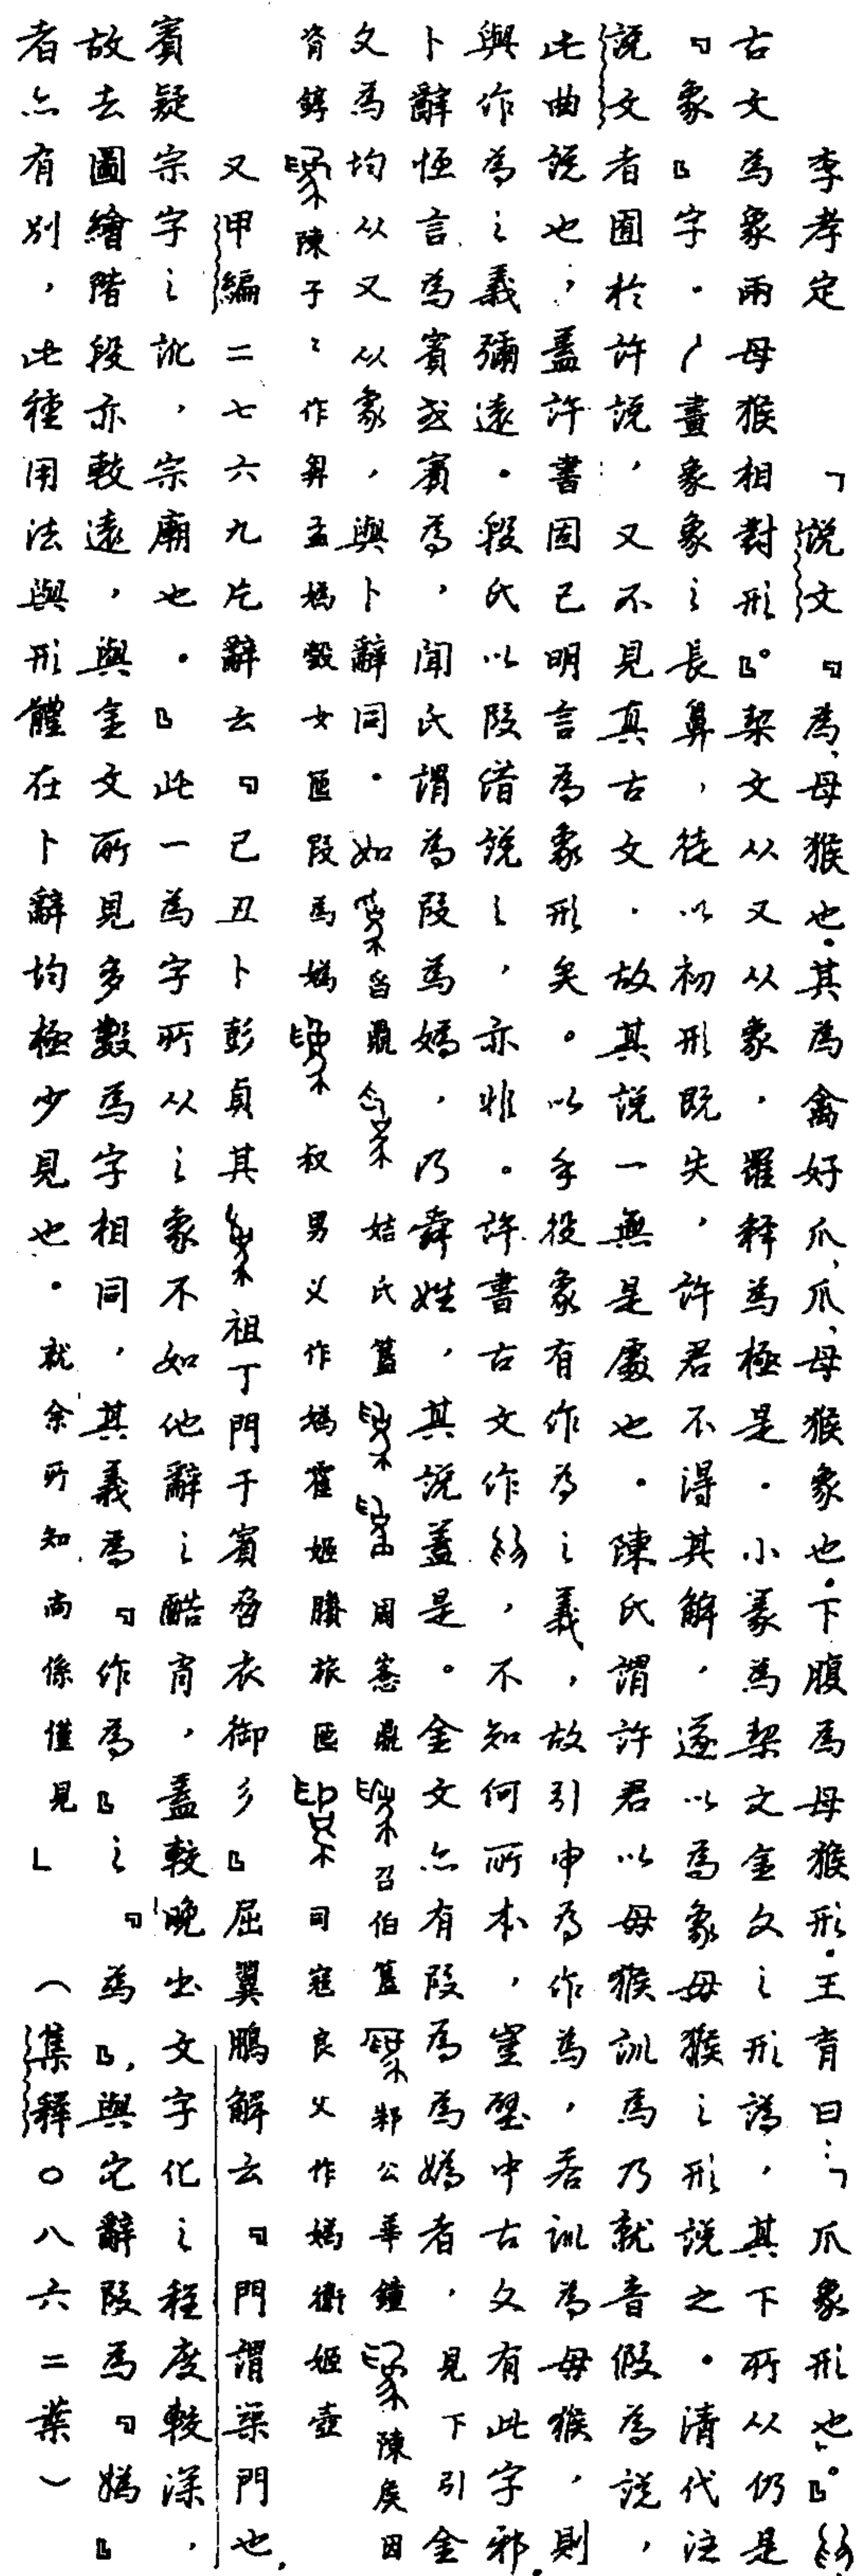 李孝定　「說文『為，母猴也。其為禽好爪，爪，母猴象也。下腹為母猴形。王育曰：「爪象形也」。』
古文為象兩母猴相對形』。契文从又从象，羅釋為極是。小篆為契文金文之形譌，其下所从仍是
『象』字。畫象象之長鼻，徒以初形既失，許君不得其解，遂以為象母猴之形說之。清代注
說文者囿於許說，又不見真古文，故其說一無是處也。陳氏謂許君以母猴訓為乃就音假為說，
此曲說也，蓋許書固已明言為象形矣。以手役象有作為之義，故引申為作為，若訓為母猴，則
與作為之義彌遠。段氏以叚借說之，亦非。許書古文作，不知何所本，豈壁中古文有此字邪。
卜辭恆言為賓或賓為，聞氏謂為叚為媯，乃舜姓，其說蓋是。金文亦有叚為為媯者，見下引金
文為均从又从象，與卜辭同。如曶鼎　姞氏簋　周窓鼎　召伯簋　邾公華鐘　陳侯因
𬱃錞　陳子子作𢍰孟媯㝅女匜叚為媯　叔男父作媯霍姬賸旅匜　司寇良父作媯衛姬壺
又甲編二七六九片辭云『己丑卜彭貞其祖丁門于賓召衣御彡』屈翼鵬解云『門謂渠門也，
賓疑宗字之訛，宗廟也。』此一為字所从之象不如他辭之酷肖，蓋較晚出文字化之程度較深，
故去圖繪階段亦較遠，與金文所見多數為字相同，其義為『作為』之『為』，與它辭叚為『媯』
者亦有別，此種用法與形體在卜辭均極少見也。就余所知，尚係僅見」（集釋○八六二葉）